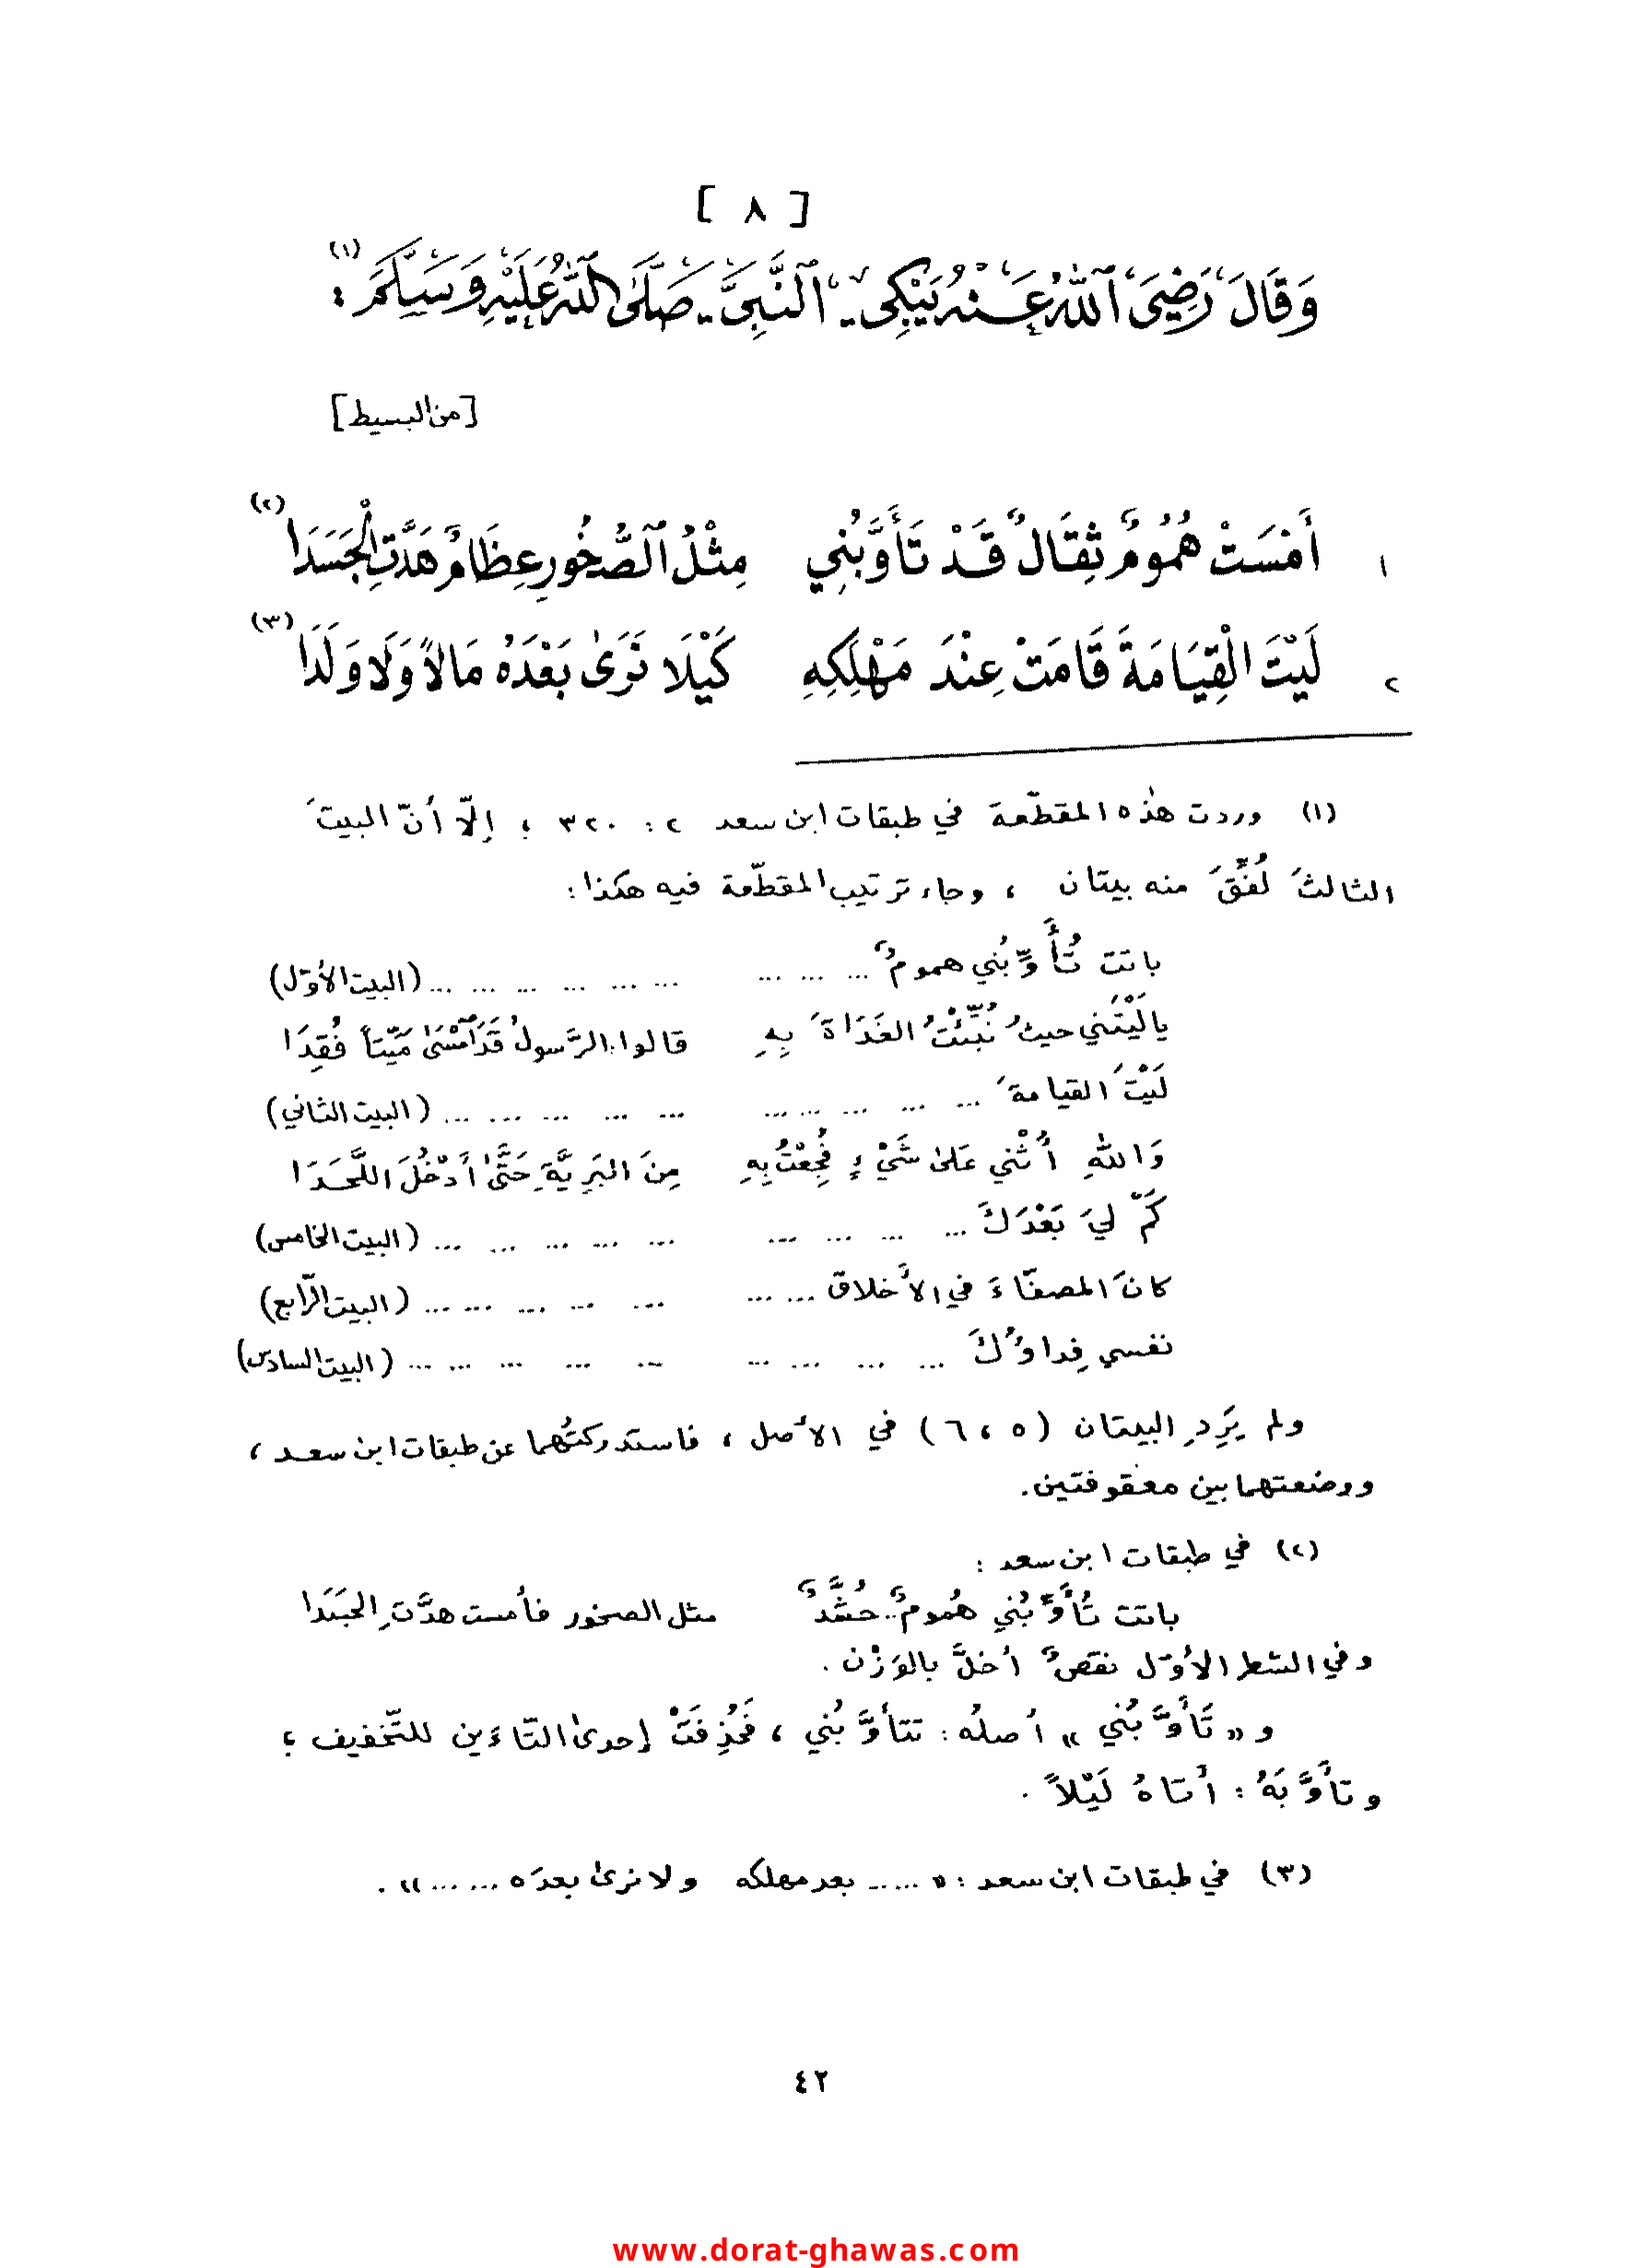 [ ٨ ]
وَقَالَ رَضِيَ اللهُ عَنْهُ يَبْكِي ـ النَّبِيَّ ـ صَلَّى اللهُ عَلَيْهِ وَسَلَّمَ (١) :
[من البسيط]
١ أَمْسَتْ هُمُومٌ ثِقَالٌ قَدْ تَأَوَّبُنِي مِثْلُ الصُّخُورِ عِظَامٌ هَدَّتِ الْجَسَدَا (٢)
٢ لَيْتَ الْقِيَامَةَ قَامَتْ عِنْدَ مَهْلِكِهِ كَيْلَا نَرَىٰ بَعْدَهُ مَالاً وَلَا وَلَدَا (٣)
(١) وردت هٰذه المقطّعة في طبقات ابن سعد ٢ : ٣٢٠ ؛ إلّا أنّ البيتَ
الثالثَ لُفِّقَ منه بيتان ، وجاء ترتيب المقطّعة فيه هكذا :
باتت تُأَوِّبُني همومٌ ... ... ... ... ... ... ... ... ... (البيت الأوّل)
يا لَيْتَني حيثُ نُبِّئْتُ الغَدَاةَ بِهِ قالوا الرَّسولُ قَدَ امْسَىٰ مَيِّتاً فُقِدَا
لَيْتَ القيامةَ ... ... ... ... ... ... ... ... ... ... (البيت الثاني)
وَاللهِ أُثْني عَلىٰ شَيْءٍ فُجِعْتُ بِهِ مِنَ البَرِيَّةِ حَتَّىٰ أَدْخُلَ اللَّحَدَا
كَمْ لِيَ بَعْدَكَ ... ... ... ... ... ... ... ... ... (البيت الخامس)
كانَ المصفّاءَ في الأَخلاق ... ... ... ... ... ... ... ... (البيت الرّابع)
نفسي فِداؤُكَ ... ... ... ... ... ... ... ... ... (البيت السادس)
ولم يَرِدِ البيتان (٥ ، ٦) في الأَصل ، فاستدركتُهما عن طبقات ابن سعد ،
ووضعتهما بين معقوفتين.
(٢) في طبقات ابن سعد :
باتت تُأَوِّبُني هُمومٌ .. حُشَّدٌ مثل الصخور فأَمست هدَّتِ الجَسَدا
وفي الشطر الأوّل نقصٌ أخلَّ بالوَزْن .
و «تَأَوَّبُني» أصلُه : تتأوَّبُني ، فَحُذِفَتْ إحدىٰ التّاءَين للتّخفيف ؛
وتأوَّبَهُ : أتاهُ لَيْلاً .
(٣) في طبقات ابن سعد : « ... ... بعد مهلكه ولا نرىٰ بعدَه ... ... » .
٤٢
www.dorat-ghawas.com